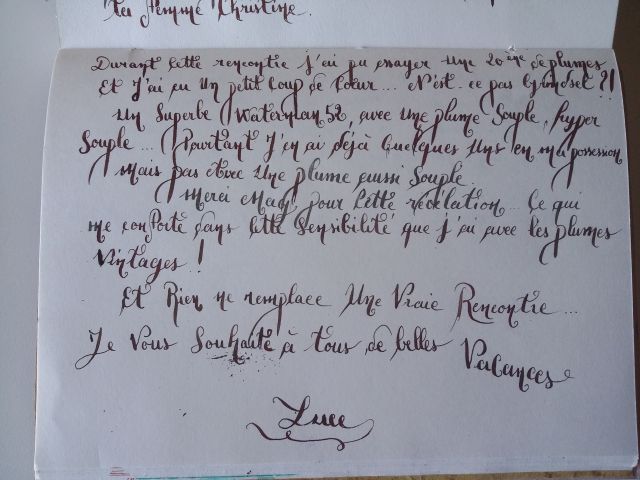 ta femme Christine.
Durant cette rencontre j'ai pu essayer une 20ne de plumes
Et j'ai eu un petit coup de cœur... N'est-ce pas Grindsel ?!
Un Superbe Waterman 52, avec une plume souple, hyper
Souple... Pourtant j'en ai déjà quelques uns en ma possession
mais pas avec une plume aussi souple.
Merci Mag, pour cette révélation... Ce qui
me conforte dans cette Sensibilité que j'ai avec les plumes
Vintages !
Et Rien ne remplace Une Vraie Rencontre...
Je Vous Souhaite à tous de belles Vacances
Luce